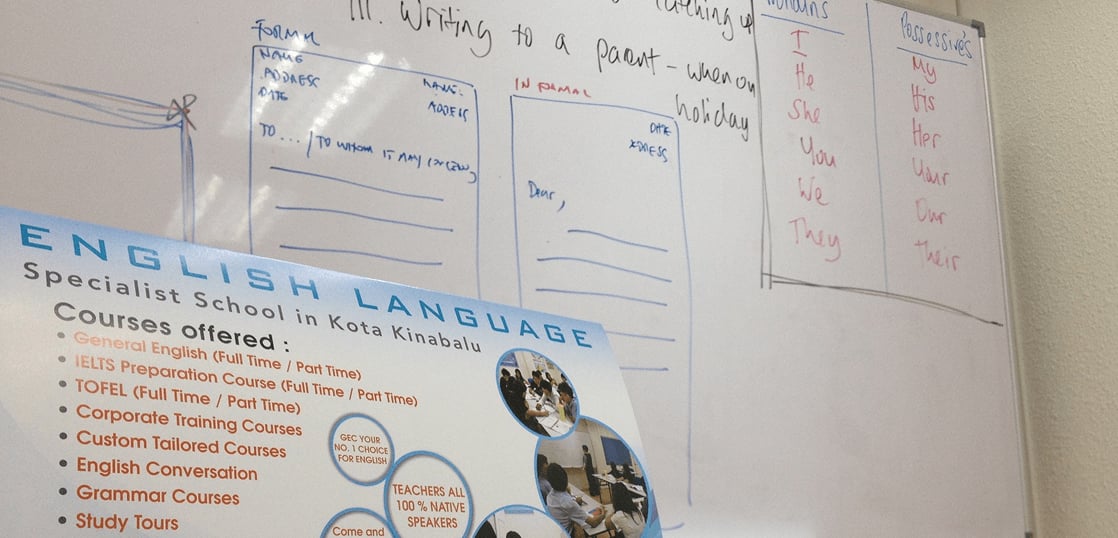 III. Writing to a parent – when on
holiday
catching up
FORMAL
NAME
ADDRESS
DATE
NAME.
ADDRESS
TO... / TO WHOM IT MAY CONCERN,
INFORMAL
DATE
ADDRESS
Dear,
I
He
She
You
We
They
Possessives
My
His
Her
Your
Our
Their
ENGLISH LANGUAGE
Specialist School in Kota Kinabalu
Courses offered :
• General English (Full Time / Part Time)
• IELTS Preparation Course (Full Time / Part Time)
• TOFEL (Full Time / Part Time)
• Corporate Training Courses
• Custom Tailored Courses
• English Conversation
• Grammar Courses
• Study Tours
GEC YOUR
NO. 1 CHOICE
FOR ENGLISH
TEACHERS ALL
100 % NATIVE
SPEAKERS
Come and